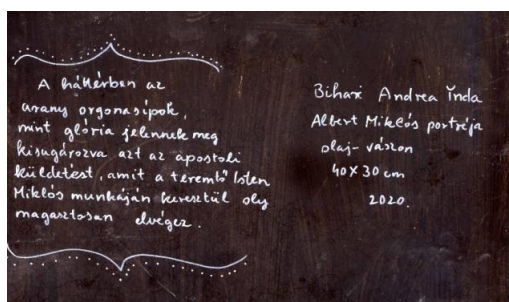 A háttérben az
arany orgonasípok,
mint glória jelennek meg
kisugározva azt az apostoli
küldetést, amit a teremtő Isten
Miklós munkáján keresztül oly
magasztosan elvégez.
Bihari Andrea Inda
Albert Miklós portréja
olaj-vászon
40 x 30 cm
2020.